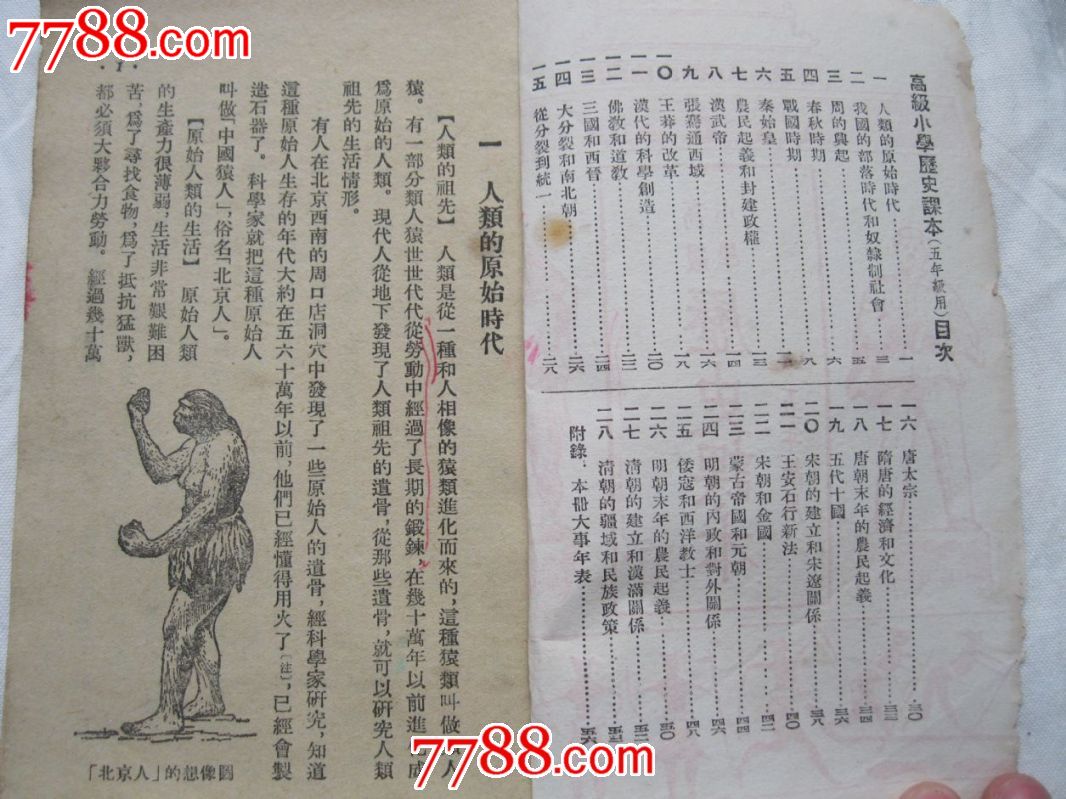 7788.com
7788.com
高級小學歷史課本(五年級用)目次
一 人類的原始時代………一
二 我國的部落時代和奴隸制社會………三
三 周的興起………五
四 春秋時期………六
五 戰國時期………八
六 秦始皇………
七 農民起義和封建政權………一三
八 漢武帝………一四
九 張騫通西域………一六
一〇 王莽的改革………一八
一一 漢代的科學創造………二〇
一二 佛教和道教………二二
一三 三國和西晉………二四
一四 大分裂和南北朝………二六
一五 從分裂到統一………二八
一六 唐太宗………三〇
一七 隋唐的經濟和文化………三二
一八 唐朝末年的農民起義………三四
一九 五代十國………三六
二〇 宋朝的建立和宋遼關係………三八
二一 王安石行新法………四〇
二二 宋朝和金國………四二
二三 蒙古帝國和元朝………四四
二四 明朝的內政和對外關係………四六
二五 倭寇和西洋教士………四八
二六 明朝末年的農民起義………五〇
二七 清朝的建立和漢滿關係………五二
二八 清朝的疆域和民族政策………五四
附錄:本冊大事年表………五六
一 人類的原始時代
【人類的祖先】 人類是從一種和人相像的猿類進化而來的,這種猿類叫做 人
猿。有一部分類人猿世世代代從勞動中經過了長期的鍛鍊,在幾十萬年以前進 成
爲原始的人類。現代人從地下發現了人類祖先的遺骨,從那些遺骨,就可以研究人類
祖先的生活情形。
有人在北京西南的周口店洞穴中發現了一些原始人的遺骨,經科學家研究,知道
這種原始人生存的年代大約在五六十萬年以前,他們已經懂得用火了〔註〕,已經會製
造石器了。科學家就把這種原始人
叫做「中國猿人」,俗名「北京人」。
【原始人類的生活】 原始人類
的生產力很薄弱,生活非常艱難困
苦,爲了尋找食物,爲了抵抗猛獸,
都必須大夥合力勞動。經過幾十萬
「北京人」的想像圖
·1·
7788.com